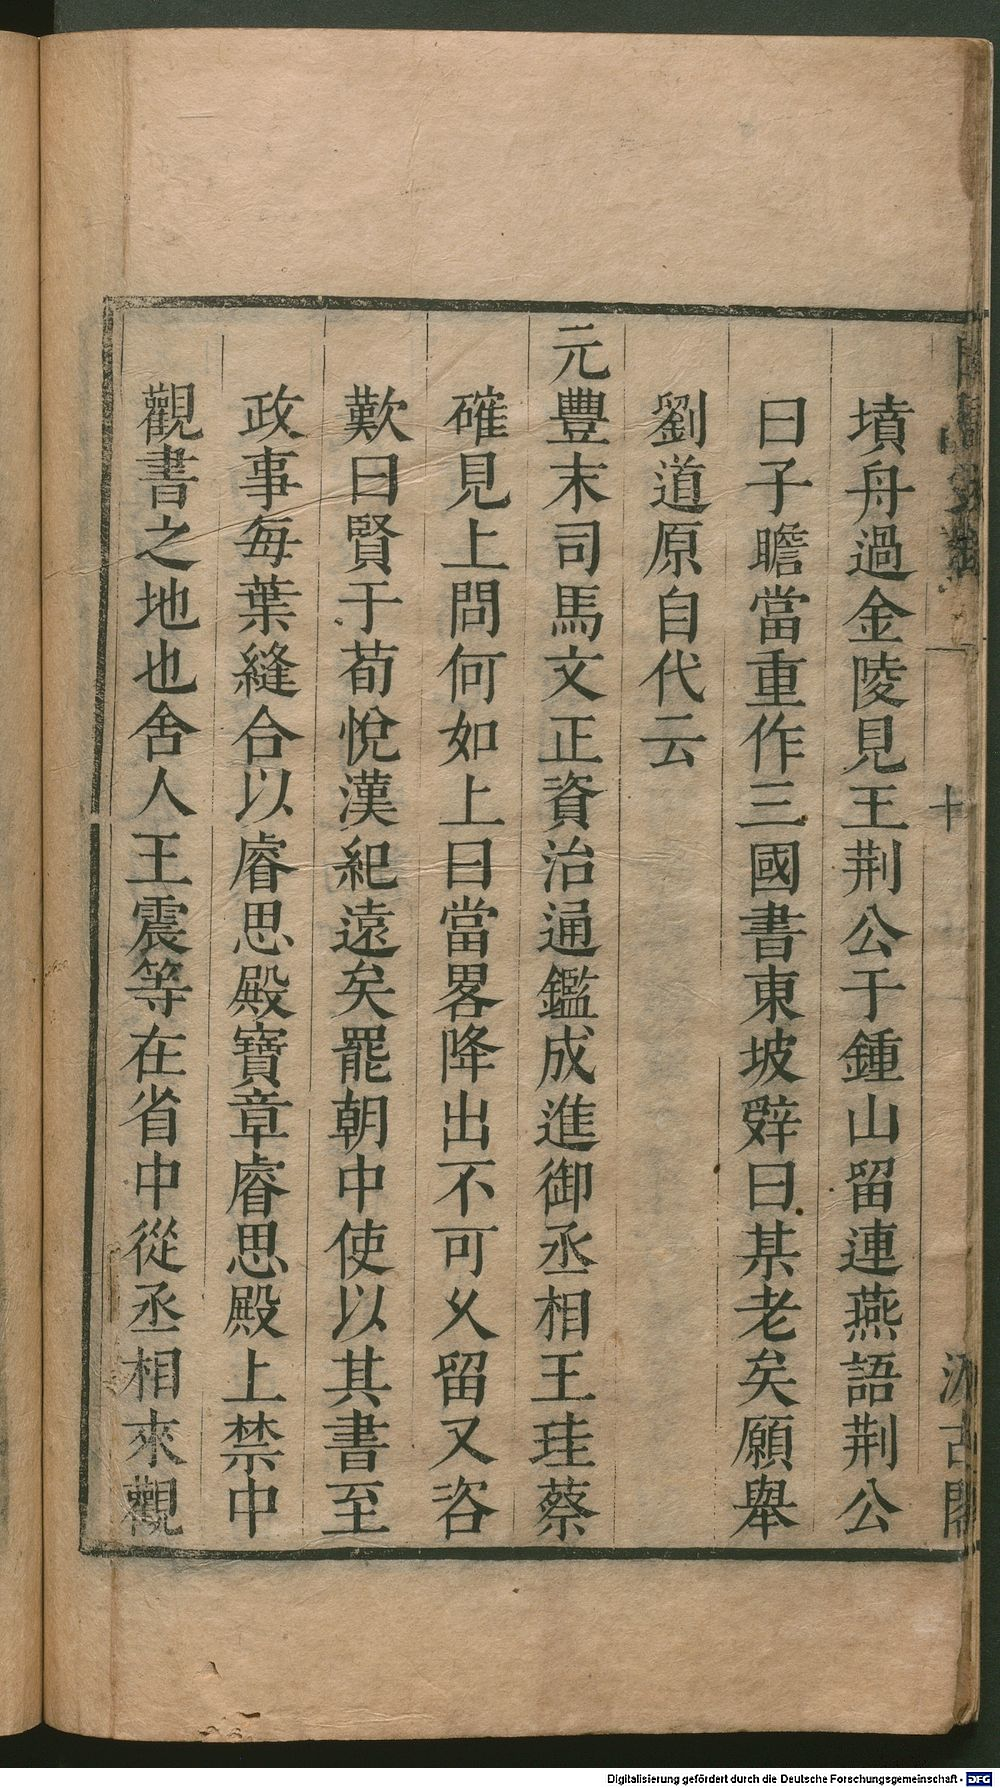 十
汲古閣
墳舟過金陵見王荆公于鍾山留連燕語荆公
曰子瞻當重作三國書東坡辤曰某老矣願舉
劉道原自代云
元豐末司馬文正資治通鑑成進御丞相王珪蔡
確見上問何如上曰當畧降出不可乆留又咨
歎曰賢于荀悅漢紀遠矣罷朝中使以其書至
政事每葉縫合以睿思殿寶章睿思殿上禁中
觀書之地也舍人王震等在省中從丞相來觀
Digitalisierung gefördert durch die Deutsche Forschungsgemeinschaft - DFG